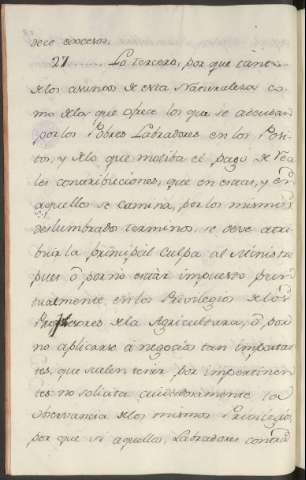 dece excesos.
27 La tercera, por que tanto
de los asumos de esta Naturaleza, co-
mo de los que ofrece los que se adeudan
por los Pobres Labradores en los Posi-
tos, y de lo que motiba el pago de Rea-
les contribuciones, que en estas, y en
aquellos se camina, por los mismos
deslumbrados terminos, se deve atri-
buir la principal culpa al Ministro
pues ò por no estàr impuesto pun-
tualmente en los Privilegios de los
Profesores de la Agricultura, ò por
no aplicarse à negocios tan importan-
tes, que suelen tener por impertinentes
no solicita cuidadosamente la
observancia de los mismos Privilegios,
por que si aquellos Labradores contra